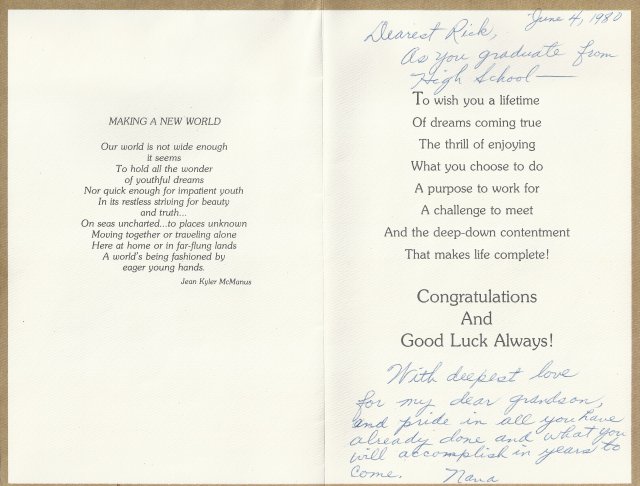 MAKING A NEW WORLD
Our world is not wide enough
it seems
To hold all the wonder
of youthful dreams
Nor quick enough for impatient youth
In its restless striving for beauty
and truth...
On seas uncharted...to places unknown
Moving together or traveling alone
Here at home or in far-flung lands
A world's being fashioned by
eager young hands.
Jean Kyler McManus
June 4, 1980
Dearest Rick,
As you graduate from
High School—
To wish you a lifetime
Of dreams coming true
The thrill of enjoying
What you choose to do
A purpose to work for
A challenge to meet
And the deep-down contentment
That makes life complete!
Congratulations
And
Good Luck Always!
With deepest love
for my dear grandson,
and pride in all you have
already done and what you
will accomplish in years to
come. Nana